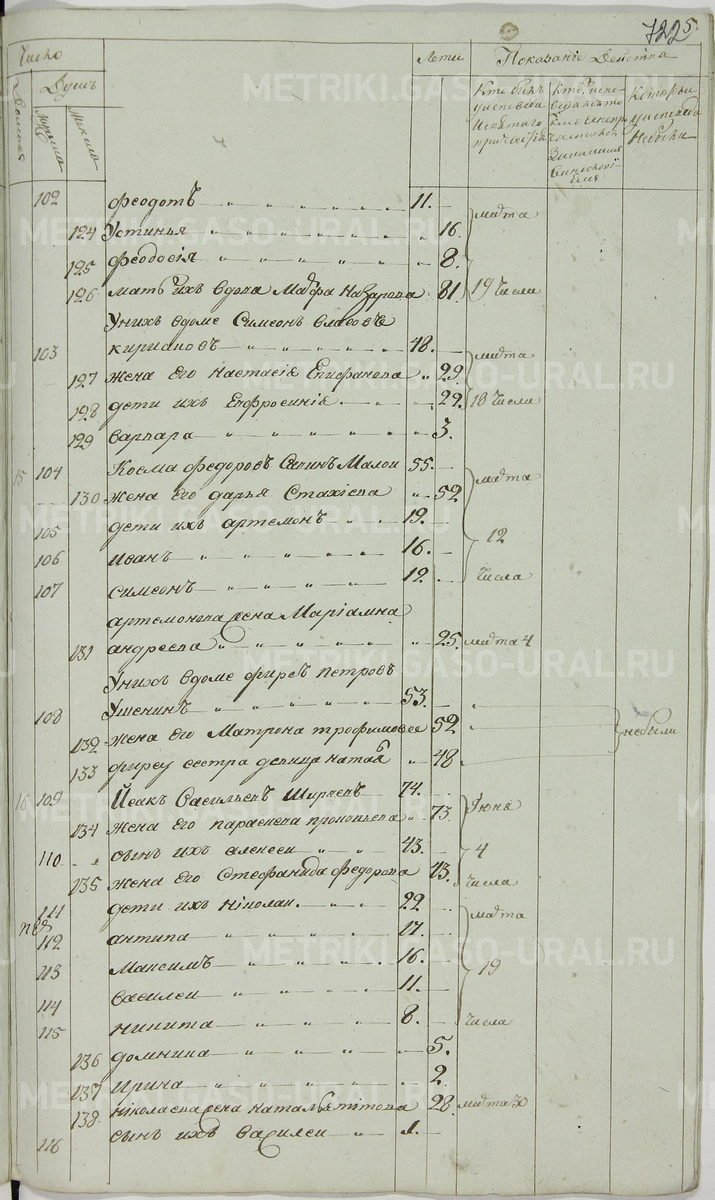 722 5
Число
Лета
Показаніе Действа
Душъ
102 феодотъ 11.
124 Устинья 16.
марта
125 феодосія 8.
126 мать ихъ вдова Мавра Назарова 81
19 числа
Унихъ вдоме Симеонъ
103 киріановъ 48.
марта
127 жена Его настасія Епифанова 29.
128 дети ихъ Евфросинія 22.
18 числа
129 варвара 3.
15 104 Косма федоровъ Малои 55.
марта
130 жена Его дарья Стахіева 52
105 дети ихъ артемонъ 19.
12
106 иванъ 16.
107 симеонъ 12.
числа
артемонова жена Маріамна
131 андреева 25. марта 4
Унихъ вдоме фирсъ петровъ
108 Ушенинъ 53.
132 жена Его Матрона трофимова 52
небыли
133 фирсу сестра девица 48
16 109 Исакъ Васильевъ Ширяевъ 74.
Іюня
134 жена Его параскева прокопьева 73.
110 сынъ ихъ алексеи 43.
4
135 жена Его Стефанида федорова 43.
числа
111 дети ихъ ніколаи 22
марта
112 антипа 17.
113 Максимъ 16.
19
114 василеи 11.
115 никита 8.
числа
136 домника 5.
137 ирина 2.
138. ніколаева жена наталья тітова 28. марта
116 сынъ ихъ василеи 1.
METRIKI.GASO-URAL.RU